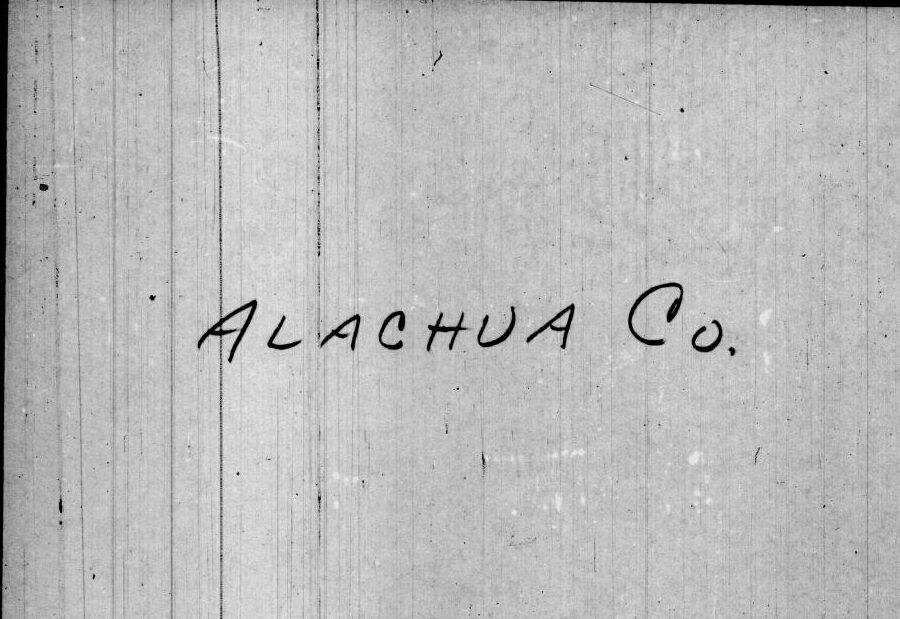 ALACHUA CO.